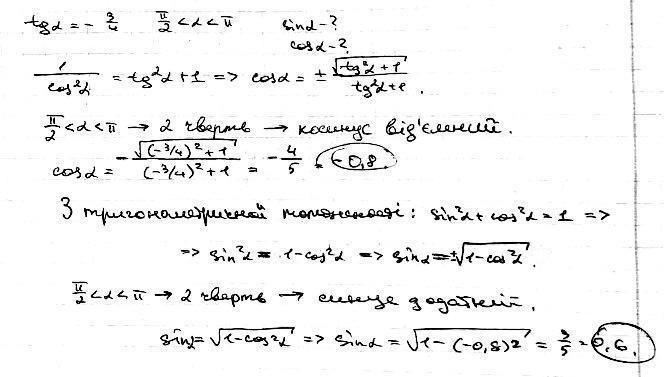 tgα = - 3/4   π/2 < α < π   sinα - ?
cosα - ?
1/cos²α = tg²α + 1 => cosα = ± √(tg²α + 1) / (tg²α + 1).
π/2 < α < π → 2 чверть → косинус від'ємний.
cosα = -√((-3/4)² + 1) / ((-3/4)² + 1) = - 4/5 = -0,8.
З тригонометричной тотожності: sin²α + cos²α = 1 =>
=> sin²α = 1 - cos²α => sinα = ±√(1 - cos²α).
π/2 < α < π → 2 чверть → синус додатній.
sinα = √(1 - cos²α) => sinα = √(1 - (-0,8)²) = 3/5 = 0,6.